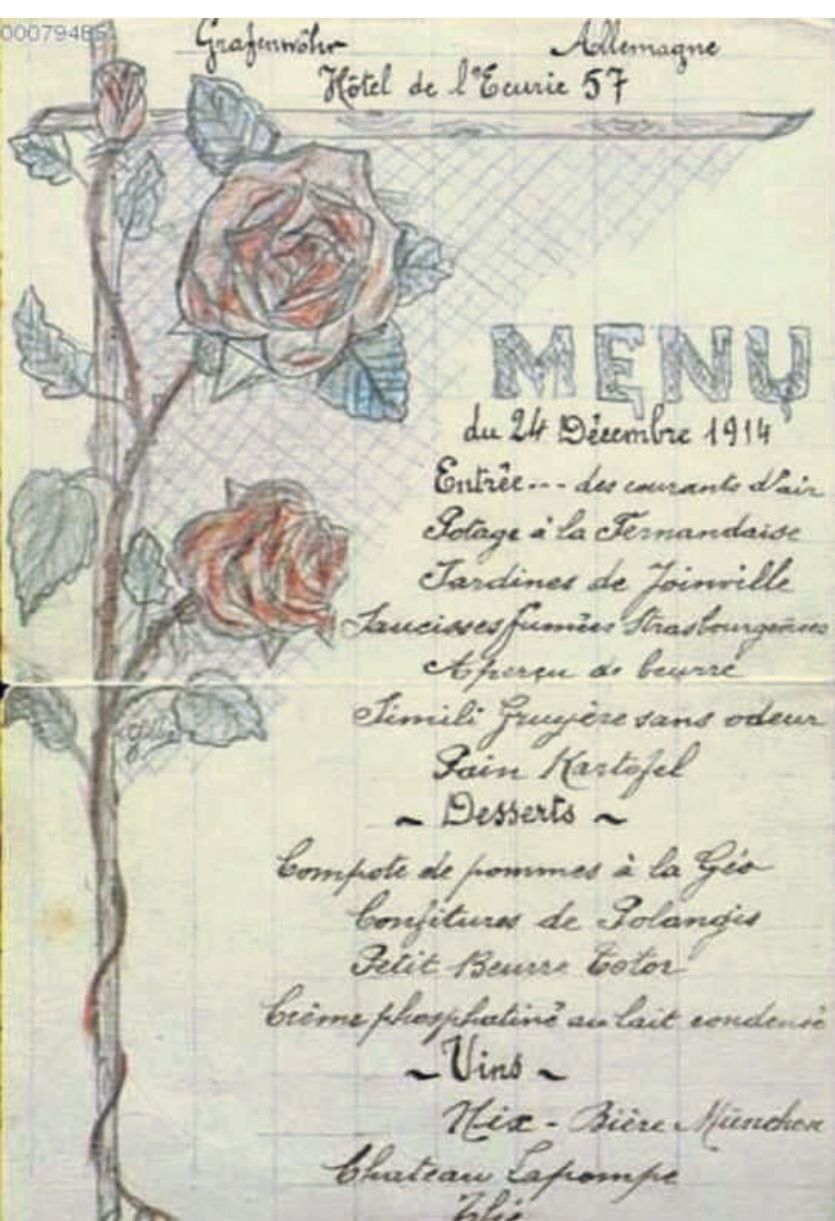 00079485
Grafenwöhr Allemagne
Hôtel de l'Ecurie 57
MENU
du 24 Décembre 1914
Entrée--- des courants d'air
Potage à la Fernandaise
Sardines de Joinville
Saucisses fumées Strasbourgeoises
Aperçu de beurre
Simili Gruyère sans odeur
Pain Kartofel
~ Desserts ~
Compote de pommes à la Géo
Confitures de Polangis
Petit Beurre Totor
Crème phosphatine au lait condensé
~ Vins ~
Nix - Bière München
Chateau Lapompe
Thé